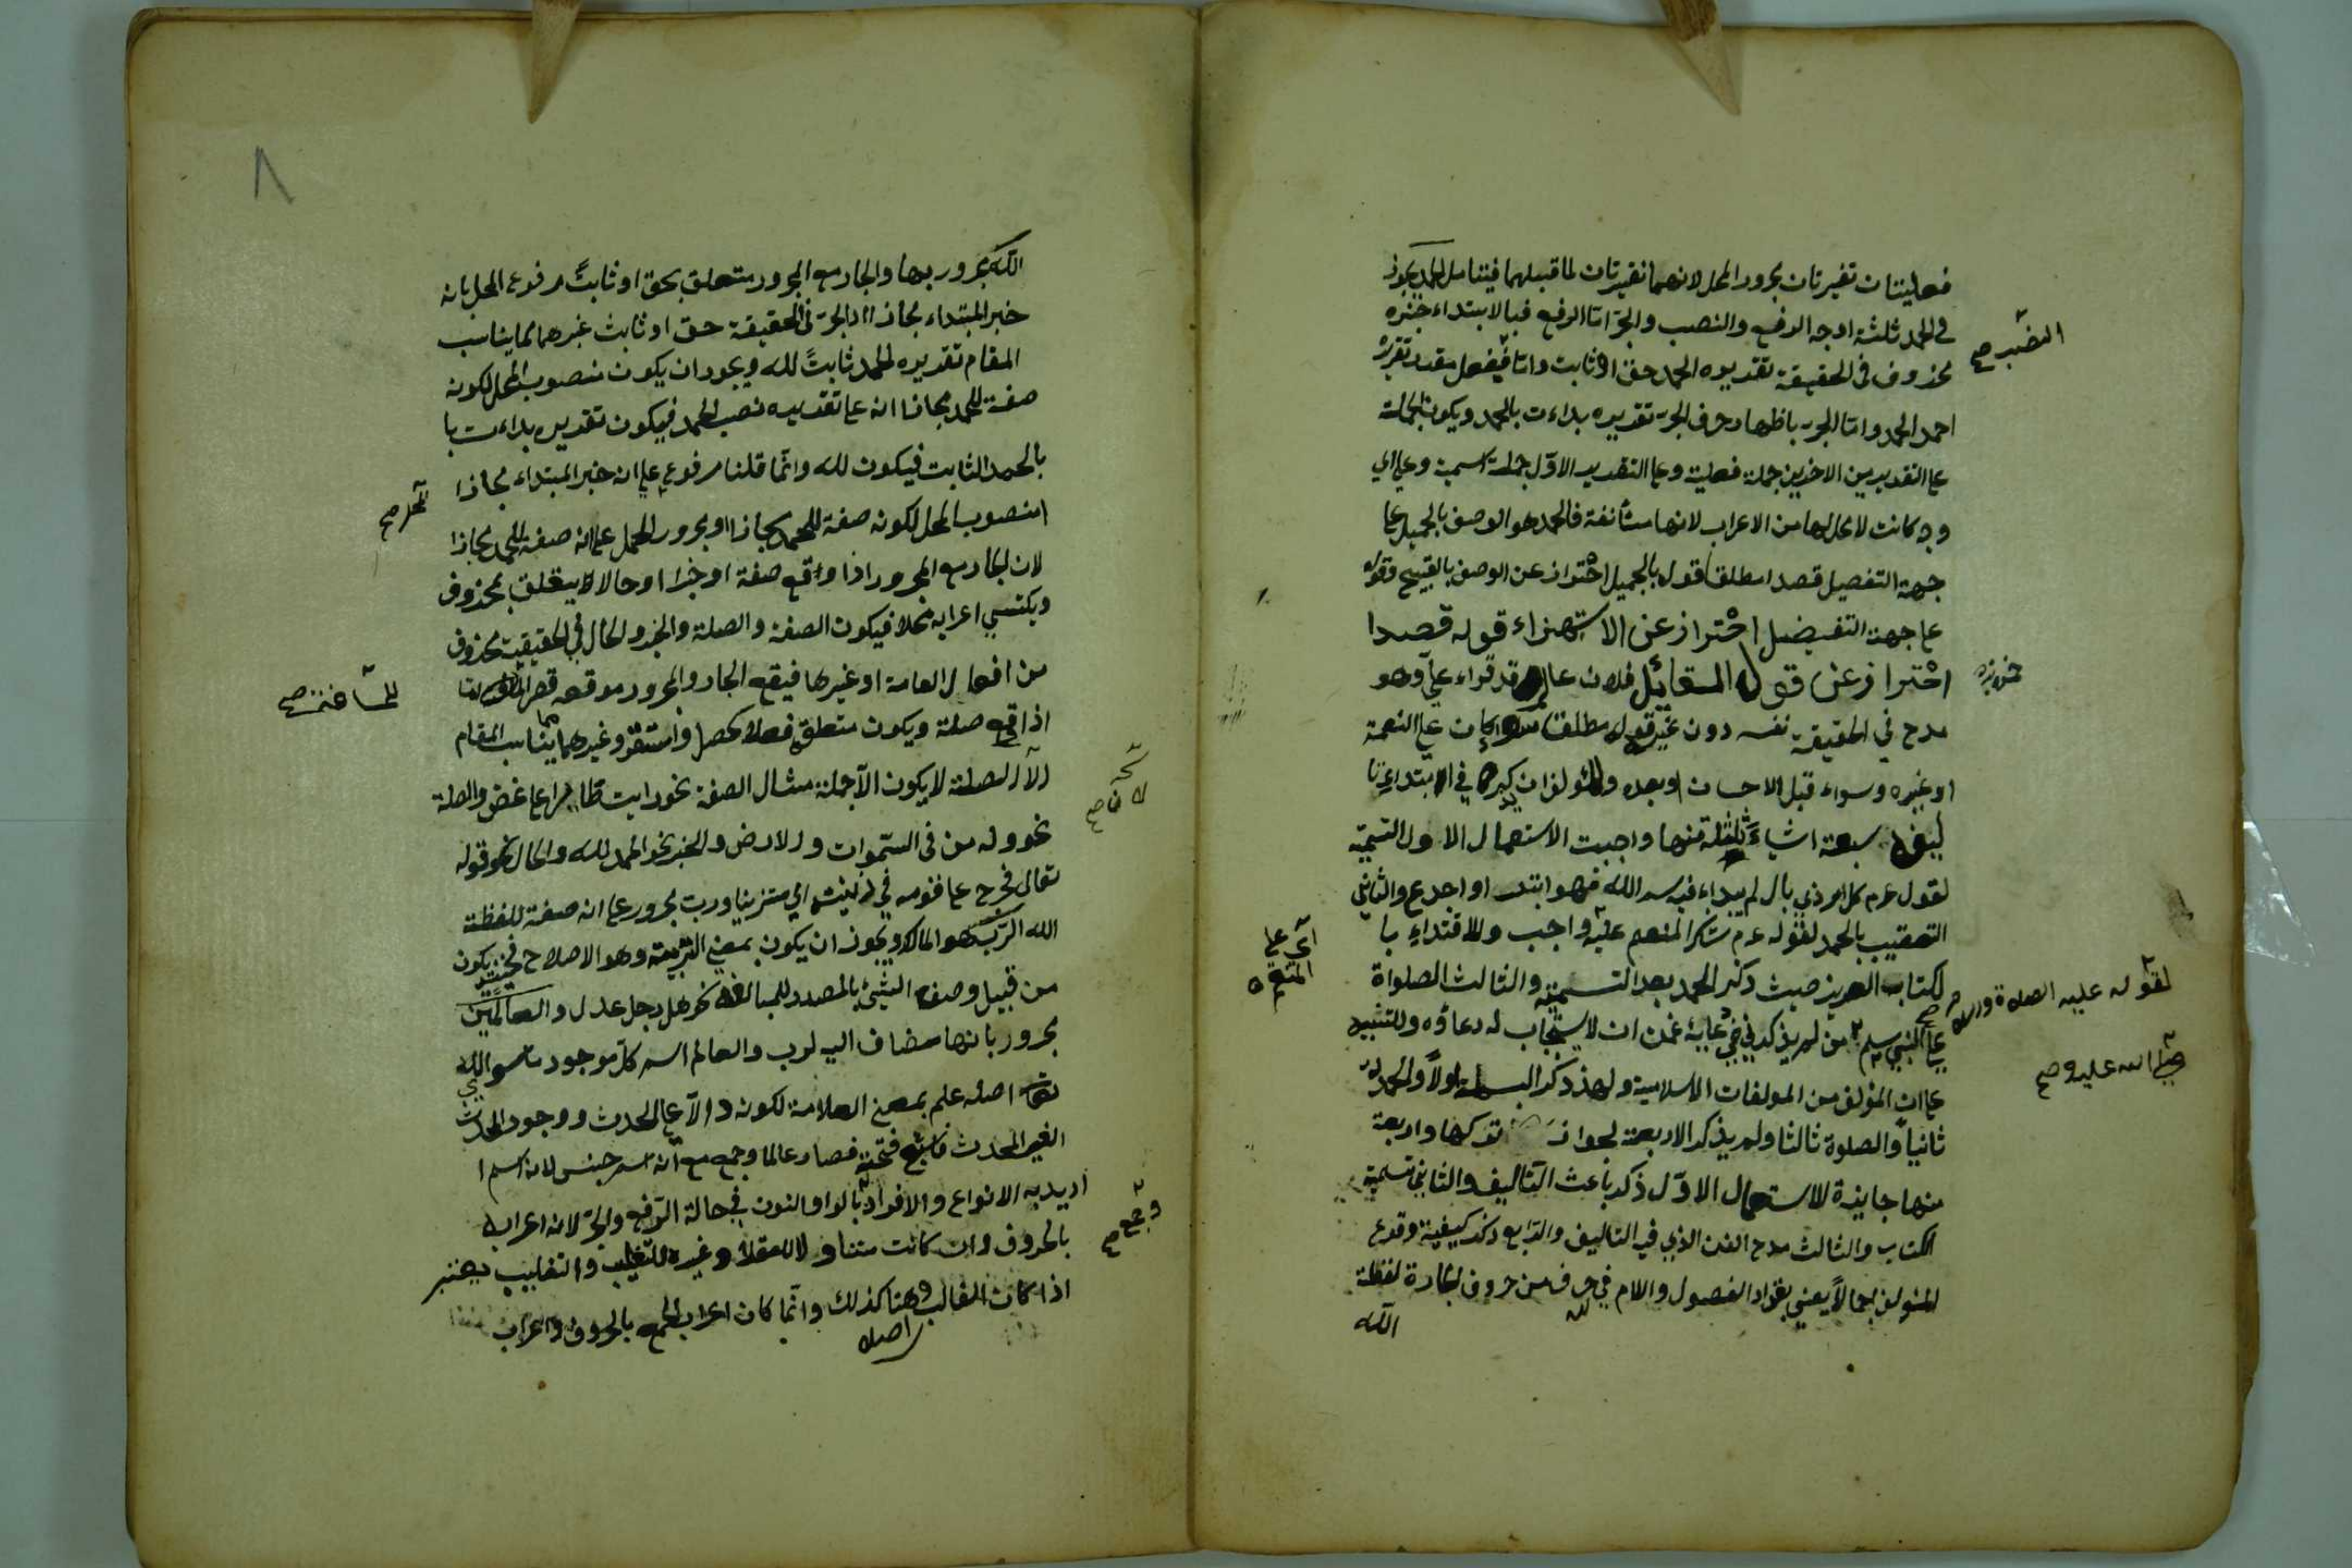 فعليتان تفيرتان مجرور المحل لانهما نفيرتان لما قبلهما فيتامل الحمد يجوز
في الحمد ثلثة اوجه الرفع والنصب والجر اما الرفع فبالابتداء خبره
محذوف في الحقيقة تقديره الحمد حق او ثابت واما فبفعل مقدر تقديره
النصب صح
احمد الحمد واما الجر باظهار حرف الجر تقديره بداءت بالحمد ويكون الجملة
على التقديرين الاخرين جملة فعلية وعلى التقدير الاول جملة اسمية وعلى اي
وجه كانت لا محل لها من الاعراب لانها مستأنفة فالحمد هو الوصف بالجميل على
جهة التفصيل قصدا مطلقا قوله بالجميل احتراز عن الوصف بالقبيح وقوله
على جهة التفضيل احتراز عن الاستهزاء قوله قصدا
احتراز عن قول القائل فلان عالم قد قراء علي وهو
مدح في الحقيقة نفسه دون غيره قوله مطلقا سواء كان على النعمة
او غيره وسواء قبل الاحسان او بعده وللمؤلف ان يذكر في ابتداء
سبعة اشياء ثلثة منها واجبت الاستعمال الاول التسمية
لقوله عم كل امر ذي بال لم يبداء فيه بسم الله فهو ابتر او اجدع والثاني
التعقيب بالحمد لقوله عم شكر المنعم عليه واجب وللاقتداء با
اي على المنعم
لكتاب العزيز حيث ذكر الحمد بعد التسمية والثالث الصلواة
على النبي من لم يذكرني في غمن ان لا يستجاب له دعاؤه وللتنبيه
لقوله عليه الصلاة والسلام صح
صلى الله عليه وصح
على ان المؤلف من المولفات الاسلامية ولهذ ذكر البسملة اولاً والحمد له
ثانياً والصلوة ثالثا ولم يذكر الاربعة لجواز تركها واربعة
منها جايزة الاستعمال الاول ذكر باعث التأليف والثاني تسمية
الكتاب والثالث مدح الفن الذي فيه التاليف والرابع ذكر كيفية وقوع
المؤلف اجمالاً يعني بقراد الفصول واللام في لله حرف من حروف الجارة لفظة
الله
٨
الله مجرور بها والجار مع المجرور متعلق بحق او ثابت مرفوع المحل بانه
خبر المبتداء مجازا اذ الخبر في الحقيقة حق او ثابت غيرهما لما يناسب
المقام تقديره الحمد ثابت لله ويجوز ان يكون منصوب المحل لكونه
صفة للحمد مجازا انه على تقديره نصب الحمد فيكون تقديره بداءت با
بالحمد الثابت فيكون لله وانما قلنا مرفوع على انه خبر المبتداء مجازا
المحل صح
منصوب المحل لكونه صفة للحمد مجازا او مجرور المحل على انه صفة للحمد مجازا
لان الجار مع المجرور اذا واقع صفة او خبرا او حالا لا يتعلق بمحذوف
ويكتسي اعرابه محلا فيكون الصفة والصلة والخبر والحال في الحقيقة محذوف
من افعال العامة او غيرها فيقع الجار والمجرور موقعه
اذا وقع صلة ويكون متعلق فعلا كحصل واستقر وغيرهما يناسب المقام
لان الصلة لا يكون الا جملة مثال الصفة نحو رايت طايرا على غصن والصلة
نحو وله من في السموات والارض والخبر نحو الحمد لله والحال نحو قوله
تعالى فخرج على قومه في زينته اي متزينا ورب مجرور على انه صفة للفظة
الله الرب هو المالك ويجوز ان يكون بمعنى التربية وهو الاصلاح فحينئذ يكون
من قبيل وصف الشيء بالمصدر للمبالغة نحو هل رجل عدل والعالمين
مجرور بانها مضاف اليه لرب والعالم اسم كل موجود سوى الله
تعالى اصله علم بمعنى العلامة لكونه دالا على المحدث ووجود المحدث
الغير المحدث فاشبع فتحته فصار عالما وجمع مع انه اسم جنس لانه اسم
اريد به الانواع والافراد بالواو والنون في حالة الرفع والجر لانه اعرابه
وجمع صح
بالحروف وان كانت متناولا للعقلاء وغيره للتغليب والتغليب يعتبر
اذا كان الغالب وهنا كذلك وانما كان اعراب الجمع بالحروف واعراب
اصله